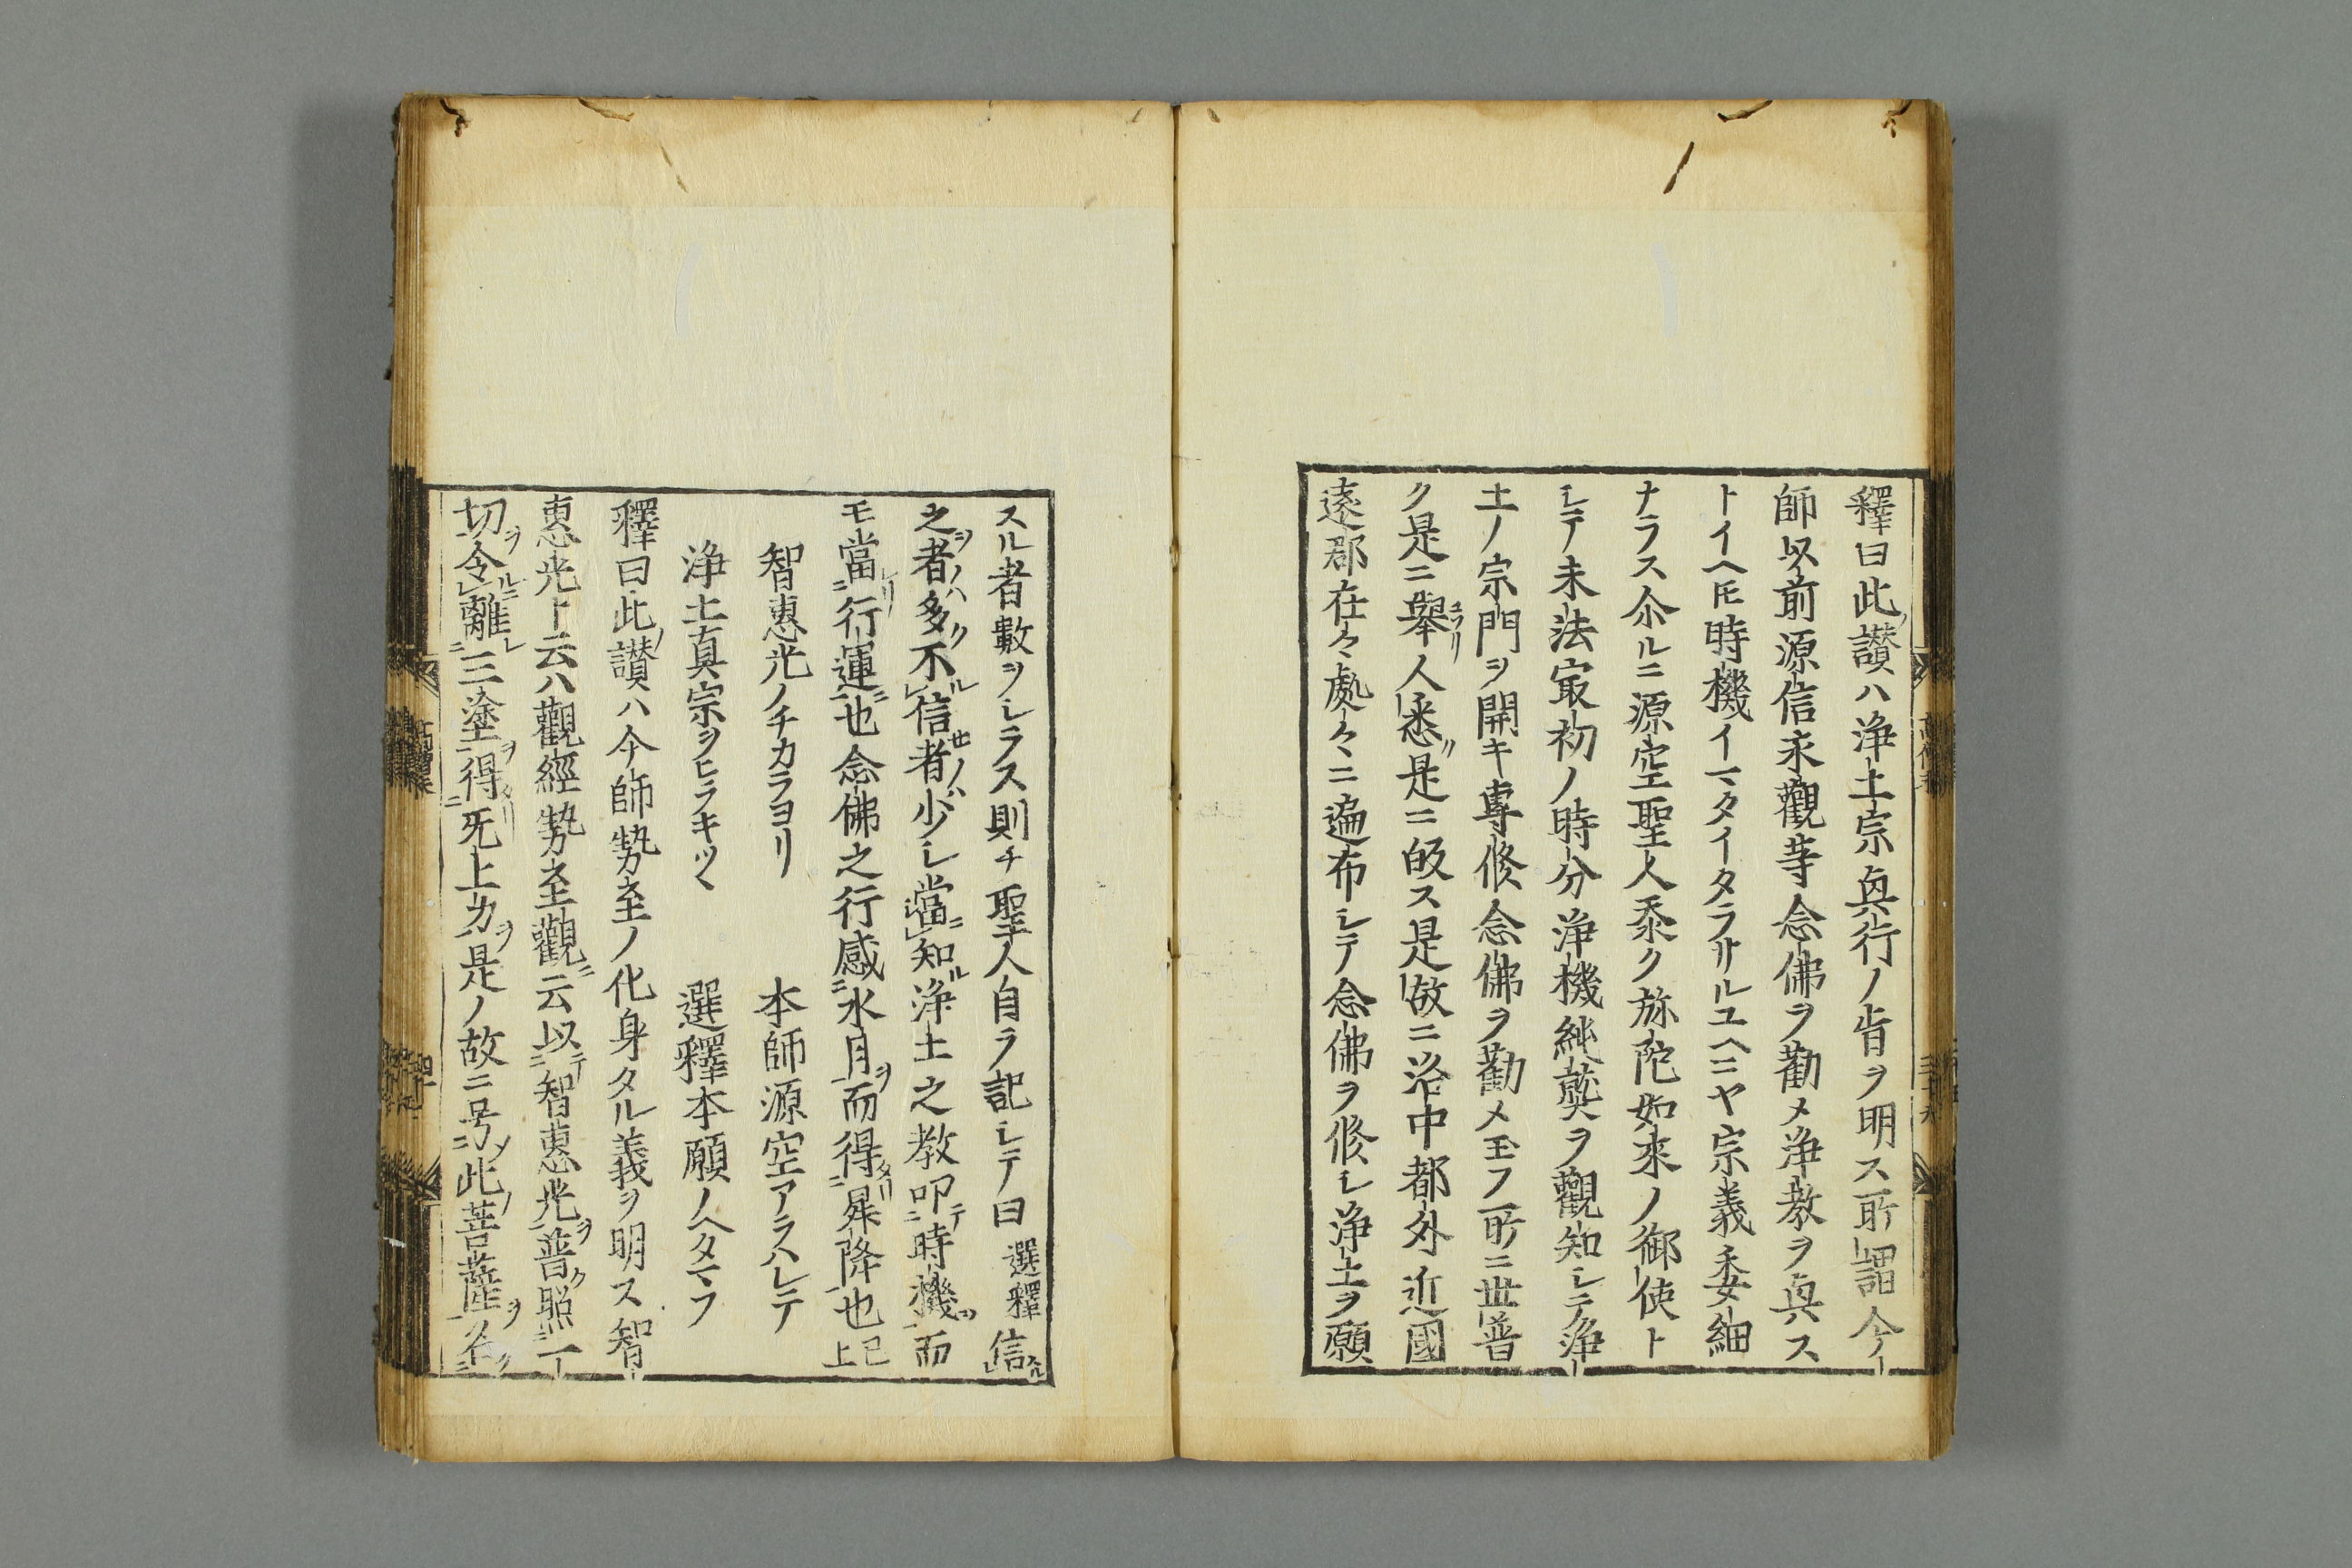 釋曰此讃ハ浄土宗眞行ノ肯ヲ明ス所謂今
師以前源信永觀䒭念佛ヲ勸メ浄教ヲ眞ス
トイヘ𪜈時機イマタイタラサルユヘニヤ宗義委細
ナラス尒ルニ源空聖人忝ク弥陀如来ノ御使ト
シテ末法㝡初ノ時分浄機純熟ヲ觀知シテ浄
土ノ宗門ヲ開キ専修念佛ヲ勸メ玉フ所ニ世普
ク是ニ擧人悉是ニ皈ス是故ニ洛中都外近國
遠郡在々處々ニ遍布シテ念佛ヲ修シ浄土ヲ願
スル者數ヲシラス則チ聖人自ラ記シテ曰選釋信
之者多不信者少シ當知浄土之教叩時機而
モ當行運也念佛之行感水月而得昇降也已上
智惠光ノチカラヨリ　本師源空アラハレテ
浄土真宗ヲヒラキツヽ　選釋本願ノヘタマフ
釋曰此讃ハ今師勢至ノ化身タル義ヲ明ス智
惠光ト云ハ觀經勢至觀云以智惠光普照一
切令離三塗得旡上力是ノ故ニ号此菩薩名